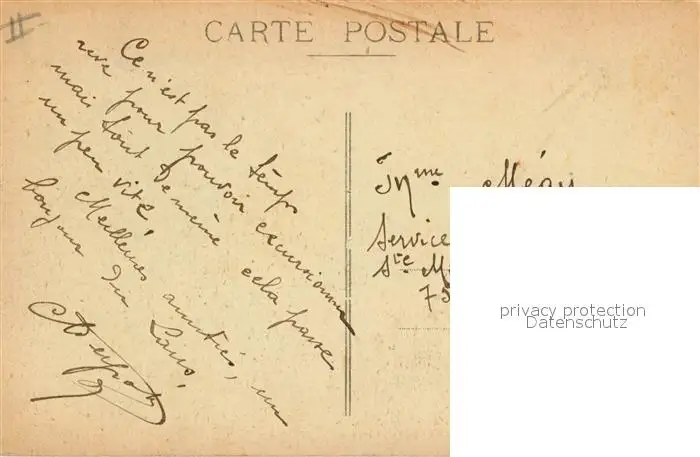 CARTE POSTALE
Ce n'est pas le temps
rêvé pour pouvoir excursionner
mais tout de même cela passe
un peu vite
Meilleures amitiés, un
bonjour du
Mme Méau
Service
Ste M
75
privacy protection
Datenschutz